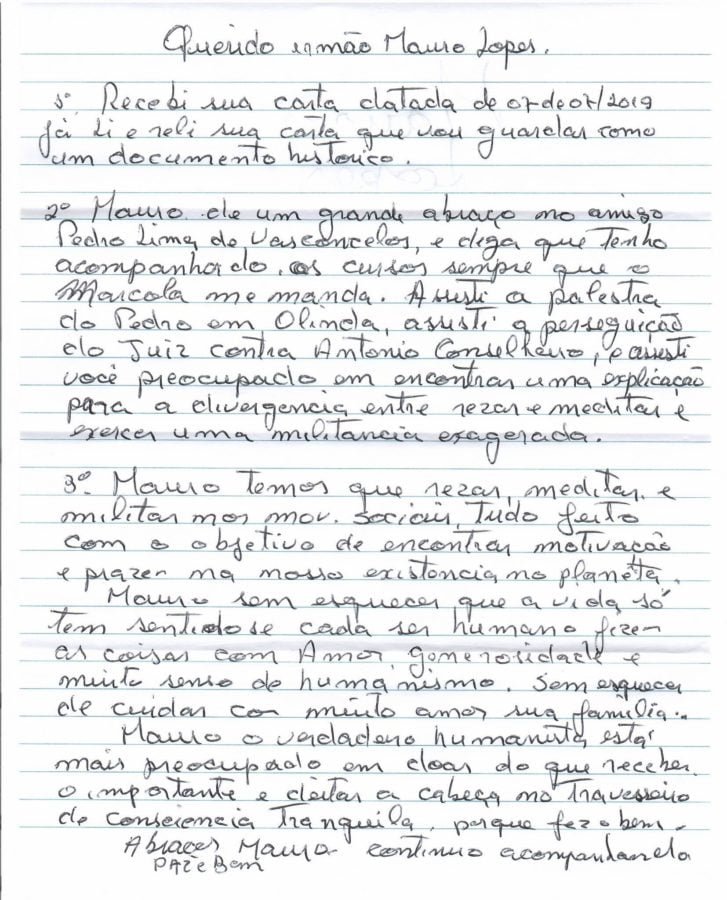 Querido irmão Mauro Lopes.
1º Recebi sua carta datada de 07 de 07/2019
já li e reli sua carta que vou guardar como
um documento historico.
2º Mauro. dê um grande abraço no amigo
Pedro Lima de Vasconcelos, e diga que tenho
acompanhado, os cursos sempre que o
Marcola me manda. Assisti a palestra
do Pedro em Olinda, assisti a perseguição
do Juiz contra Antonio Conselheiro, e assisti
você preocupado em encontrar uma explicação
para a divergencia entre rezar e meditar e
exercer uma militancia exagerada.
3º. Mauro temos que rezar, meditar, e
militar nos mov. sociais, tudo feito
com o objetivo de encontrar motivação
e prazer na nosso existencia no planeta.
Mauro sem esquecer que a vida só
tem sentido se cada ser humano fizer
as coisas com Amor, generosidade e
muito senso de humanismo. Sem esquecer
de cuidar com muito amor sua família..
Mauro o verdadeiro humanista está
mais preocupado em doar do que receber.
o importante e deitar a cabeça no travesseiro
de consciencia tranquila, porque fez o bem.
Abraços Mauro continuo acompanhando
PAZ e Bem